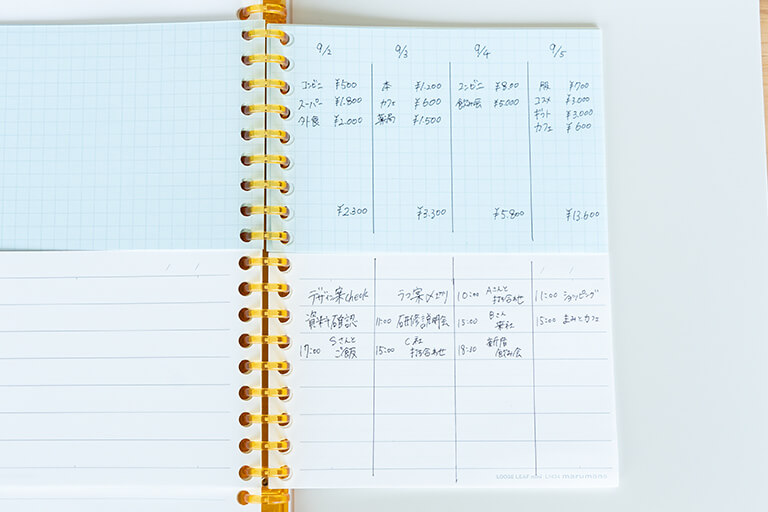 9/2
コンビニ ¥500
スーパー ¥1.800
外食 ¥2.000
¥2300
9/3
本 ¥1.200
カフェ ¥600
薬局 ¥1.500
¥3.300
9/4
コンビニ ¥800
飲み会 ¥5.000
¥5.800
9/5
服 ¥7000
コスメ ¥3.000
ギフト ¥3.000
カフェ ¥600
¥13.600
デザイン案check
資料確認
17:00 Sさんとご飯
ラフ案〆切り
11:00 研修説明会
15:00 C社打ち合わせ
10:00 Aさんと打ち合わせ
15:00 Bさん来社
18:30 新宿飲み会
11:00 ショッピング
15:00 まみとカフェ
LOOSE LEAF maruman